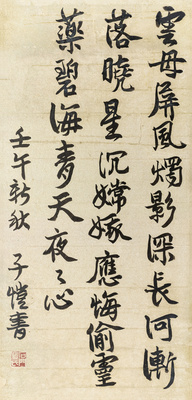 雲母屏風燭影深長河漸
落曉星沉嫦娥應悔偷靈
藥碧海青天夜々心
壬午新秋 子愷書